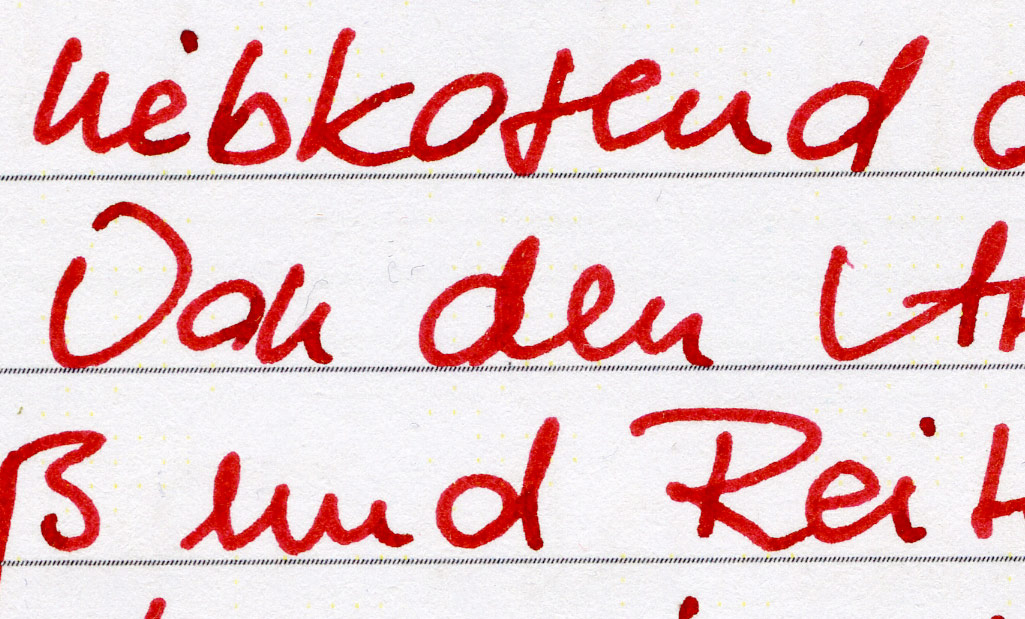 liebkosend
Von den
ß und Rei